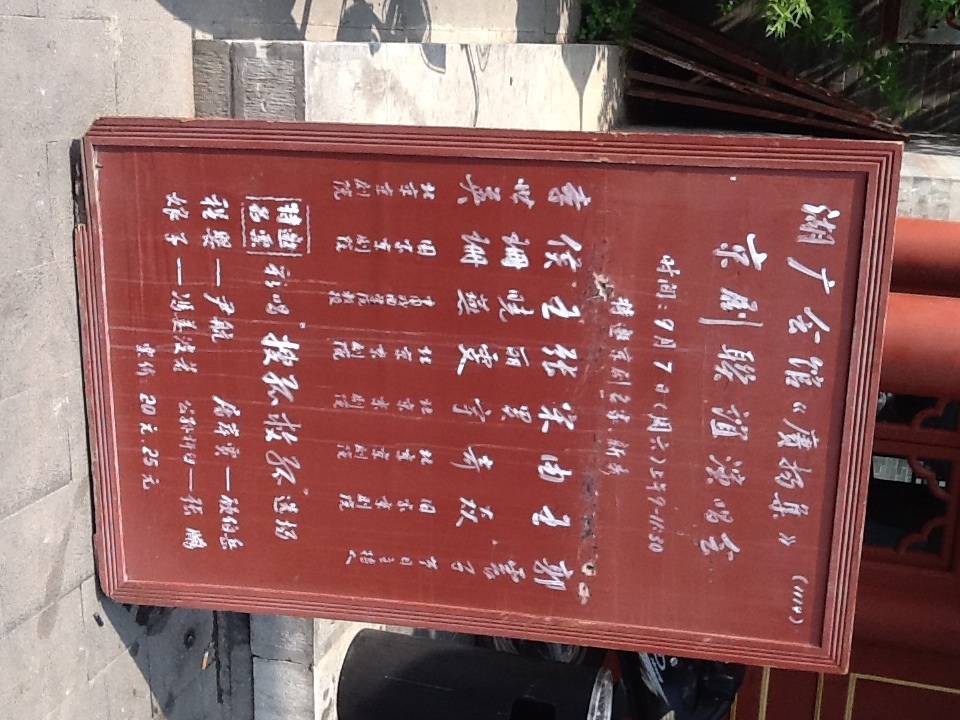 湖广会馆《廣扬集》 (1114)
京剧聯誼演唱会
时间:9月7日(周六)上午9-11:30
特邀京剧名家、新秀
李世英 北京京剧院
侯珊珊 国家京剧院
王晓燕 中国戏曲学院教授
张丽雯 北京京剧院
宋昊宇 北京京剧院
由奇 北京京剧院
王焱 国家京剧院
郭震子 节目主持人
特邀名票 彩唱"搜孤救孤"选场
程婴—尹航 屠岸贾—顾伯岳
娘子—冯姜波若 公孙杵臼—张鹏
票价:20元.25元